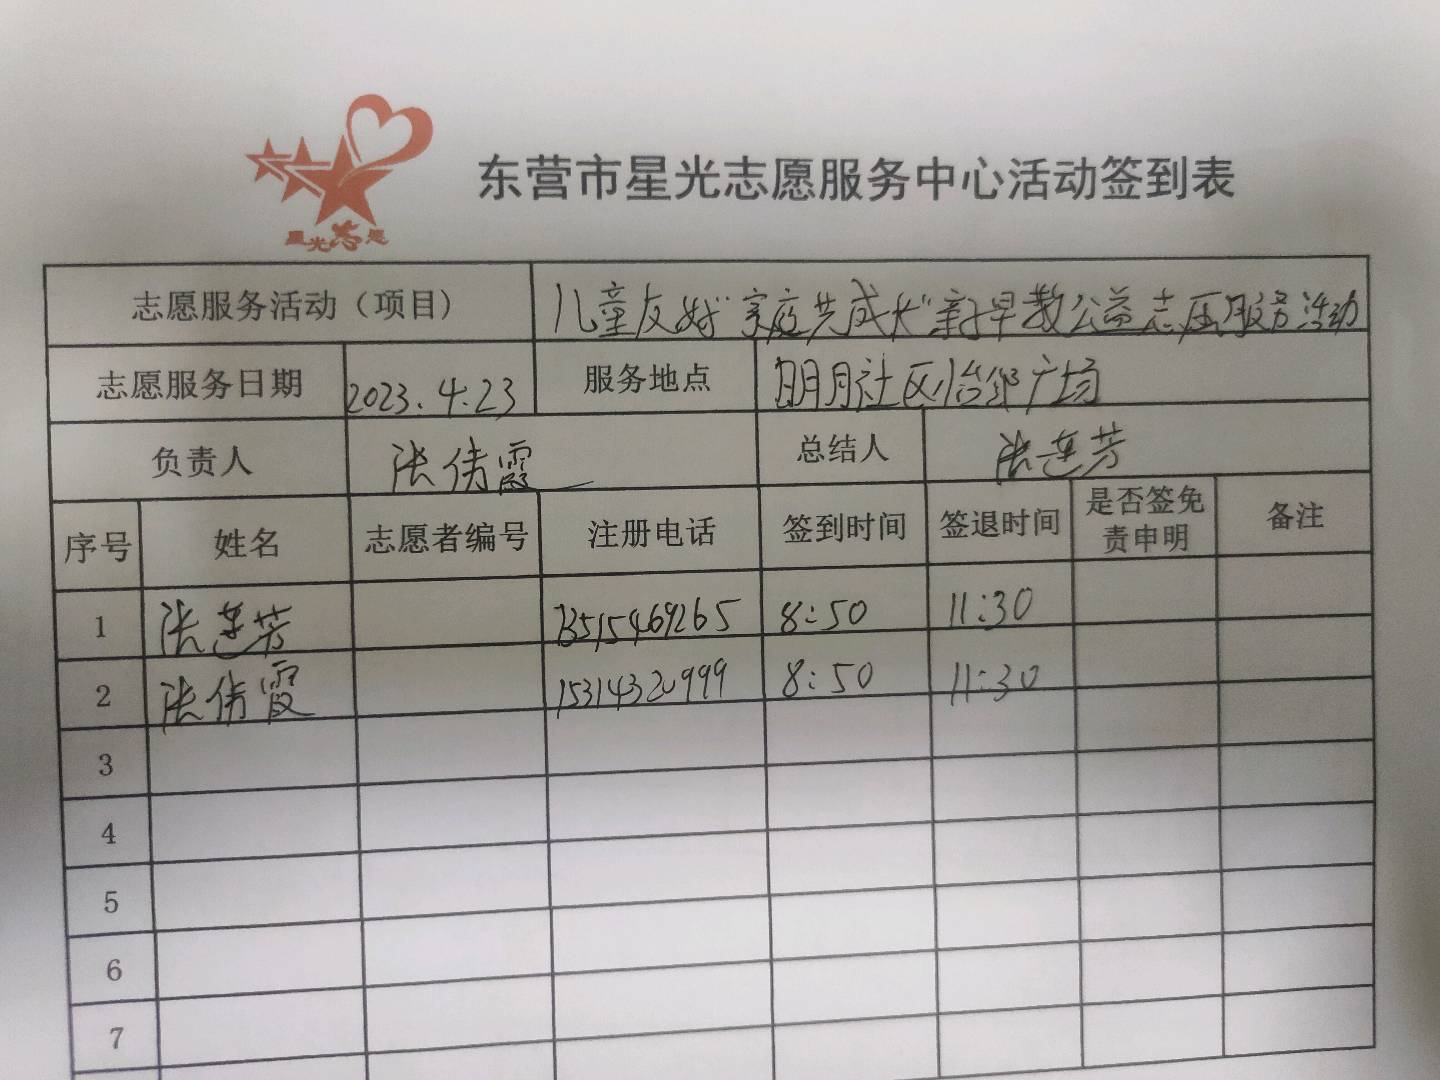 星光志愿
东营市星光志愿服务中心活动签到表
志愿服务活动（项目） 儿童友好"家庭共成长"新早教公益志愿服务活动
志愿服务日期 2023.4.23 服务地点 明月社区怡华广场
负责人 张倩霞 总结人 张莲芳
序号 姓名 志愿者编号 注册电话 签到时间 签退时间 是否签免责申明 备注
1 张莲芳 13515469265 8:50 11:30
2 张倩霞 15314320999 8:50 11:30
3
4
5
6
7